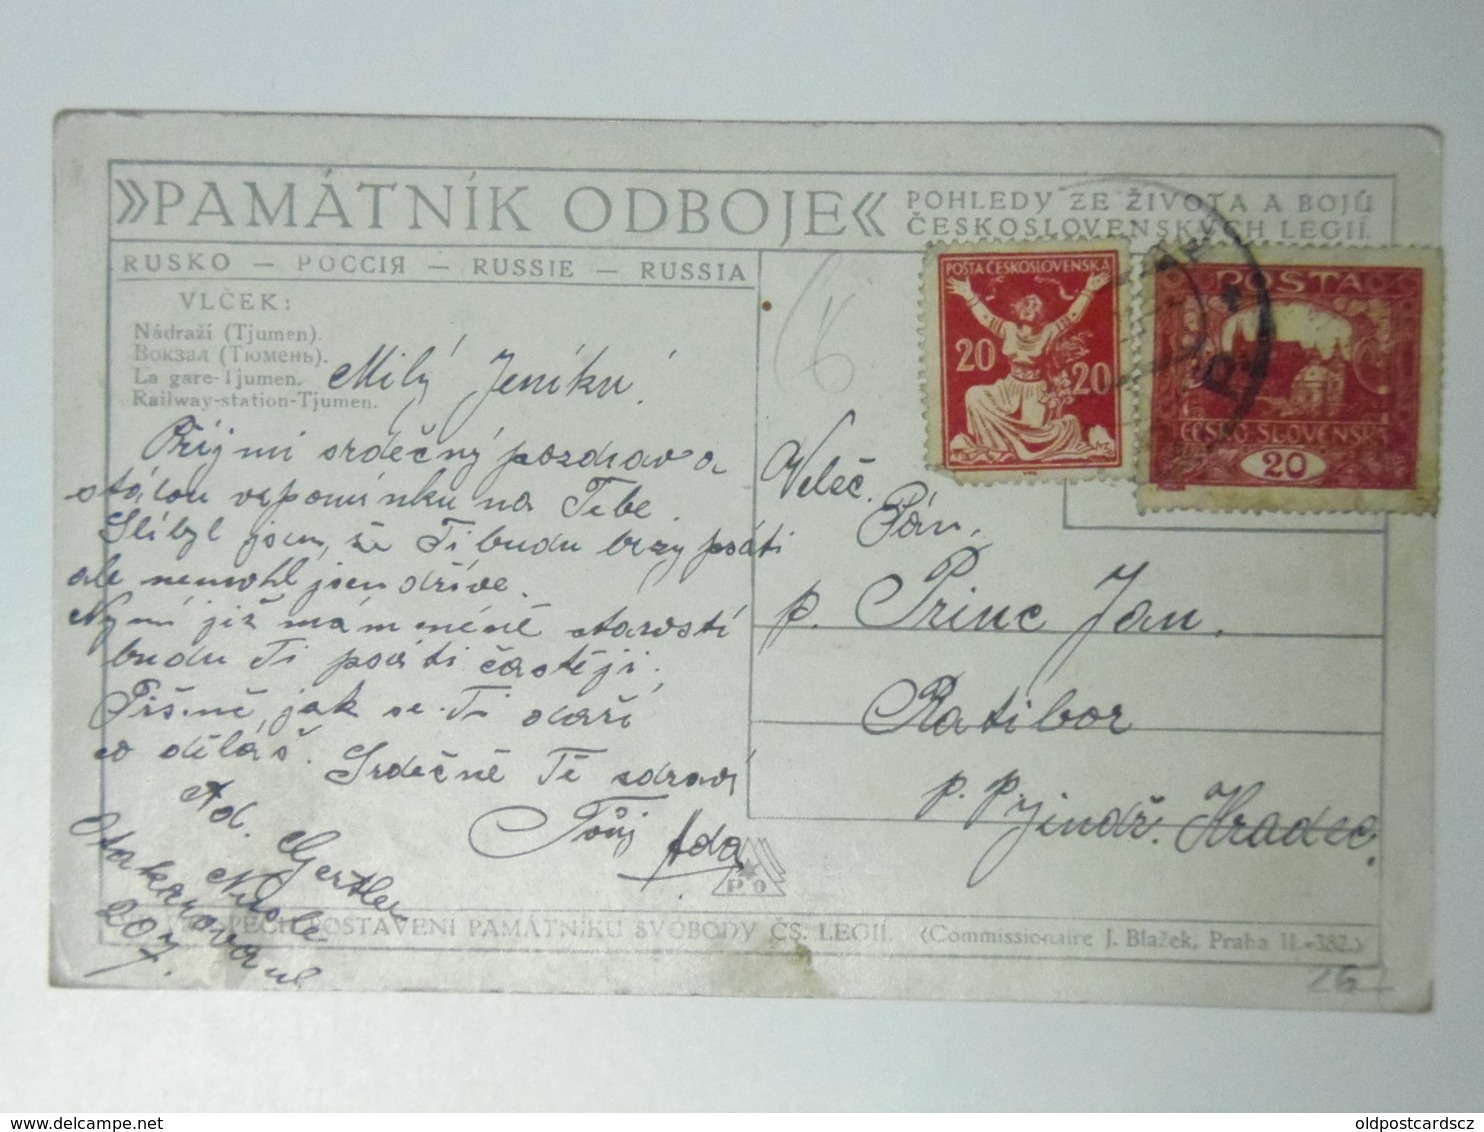 »PAMÁTNÍK ODBOJE«
POHLEDY ZE ŽIVOTA A BOJŮ
ČESKOSLOVENSKÝCH LEGIÍ.
RUSKO — РОССІЯ — RUSSIE — RUSSIA
VLČEK:
Nádraží (Tjumen).
Вокзал (Тюмень).
La gare-Tjumen.
Railway-station-Tjumen.
Milý Jeníku!
Přijmi srdečný pozdrav a
stálou vzpomínku na Tebe.
Slíbyl jsem, že Ti budu brzy psáti
ale nemohl jsem dříve.
Nyní již mám méně starostí
budu Ti psáti častěji.
Piš mě, jak se Ti daří
co děláš. Srdečně Tě zdraví
Tvůj Ada
Ad. Gertler
Nusle
Otakarova ul
207.
POŠTA ČESKOSLOVENSKÁ
20 20
POSTA
ČESKO-SLOVENSKÁ
20
Velec.
Pán,
p. Princ Jan.
Ratibor
p. Jindř. Hradec.
P O
POSTAVENÍ PAMÁTNÍKU SVOBODY ČS. LEGIÍ. (Commissionaire J. Blažek, Praha II.-382.)
oldpostcards.cz
oldpostcardscz